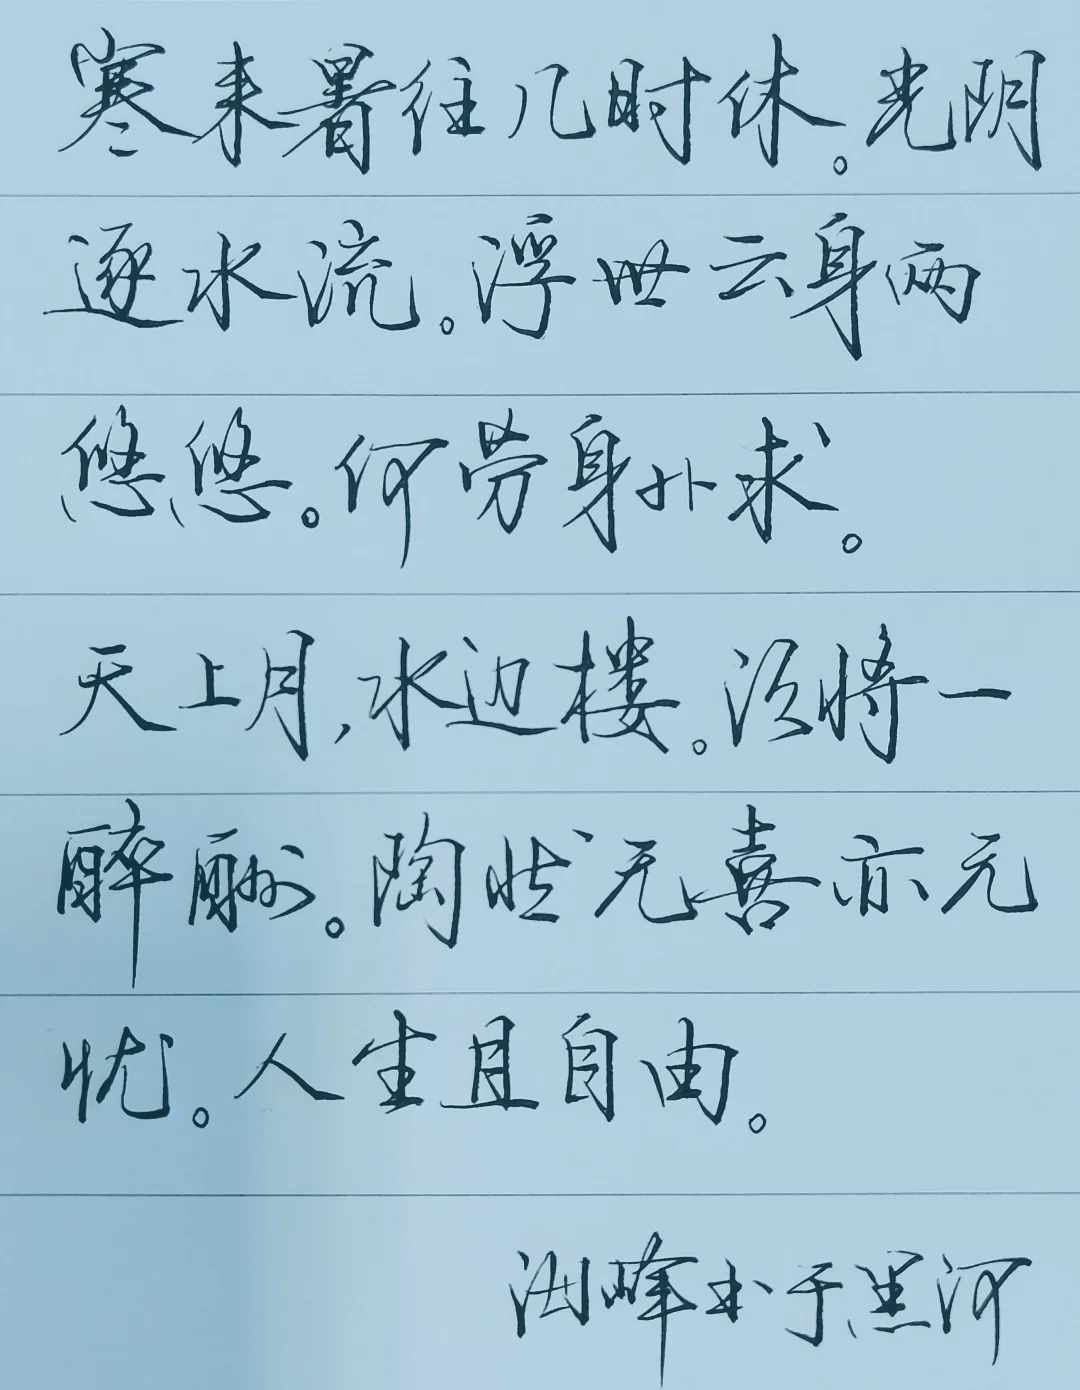 寒来暑往几时休。光阴
逐水流。浮世云身两
悠悠。何劳身外求。
天上月,水边楼。须将一
醉酬。陶然无喜亦无
忧。人生且自由。
峰书于黑河